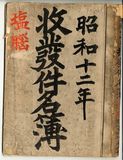 昭和十二年
收發件名簿
塩腦